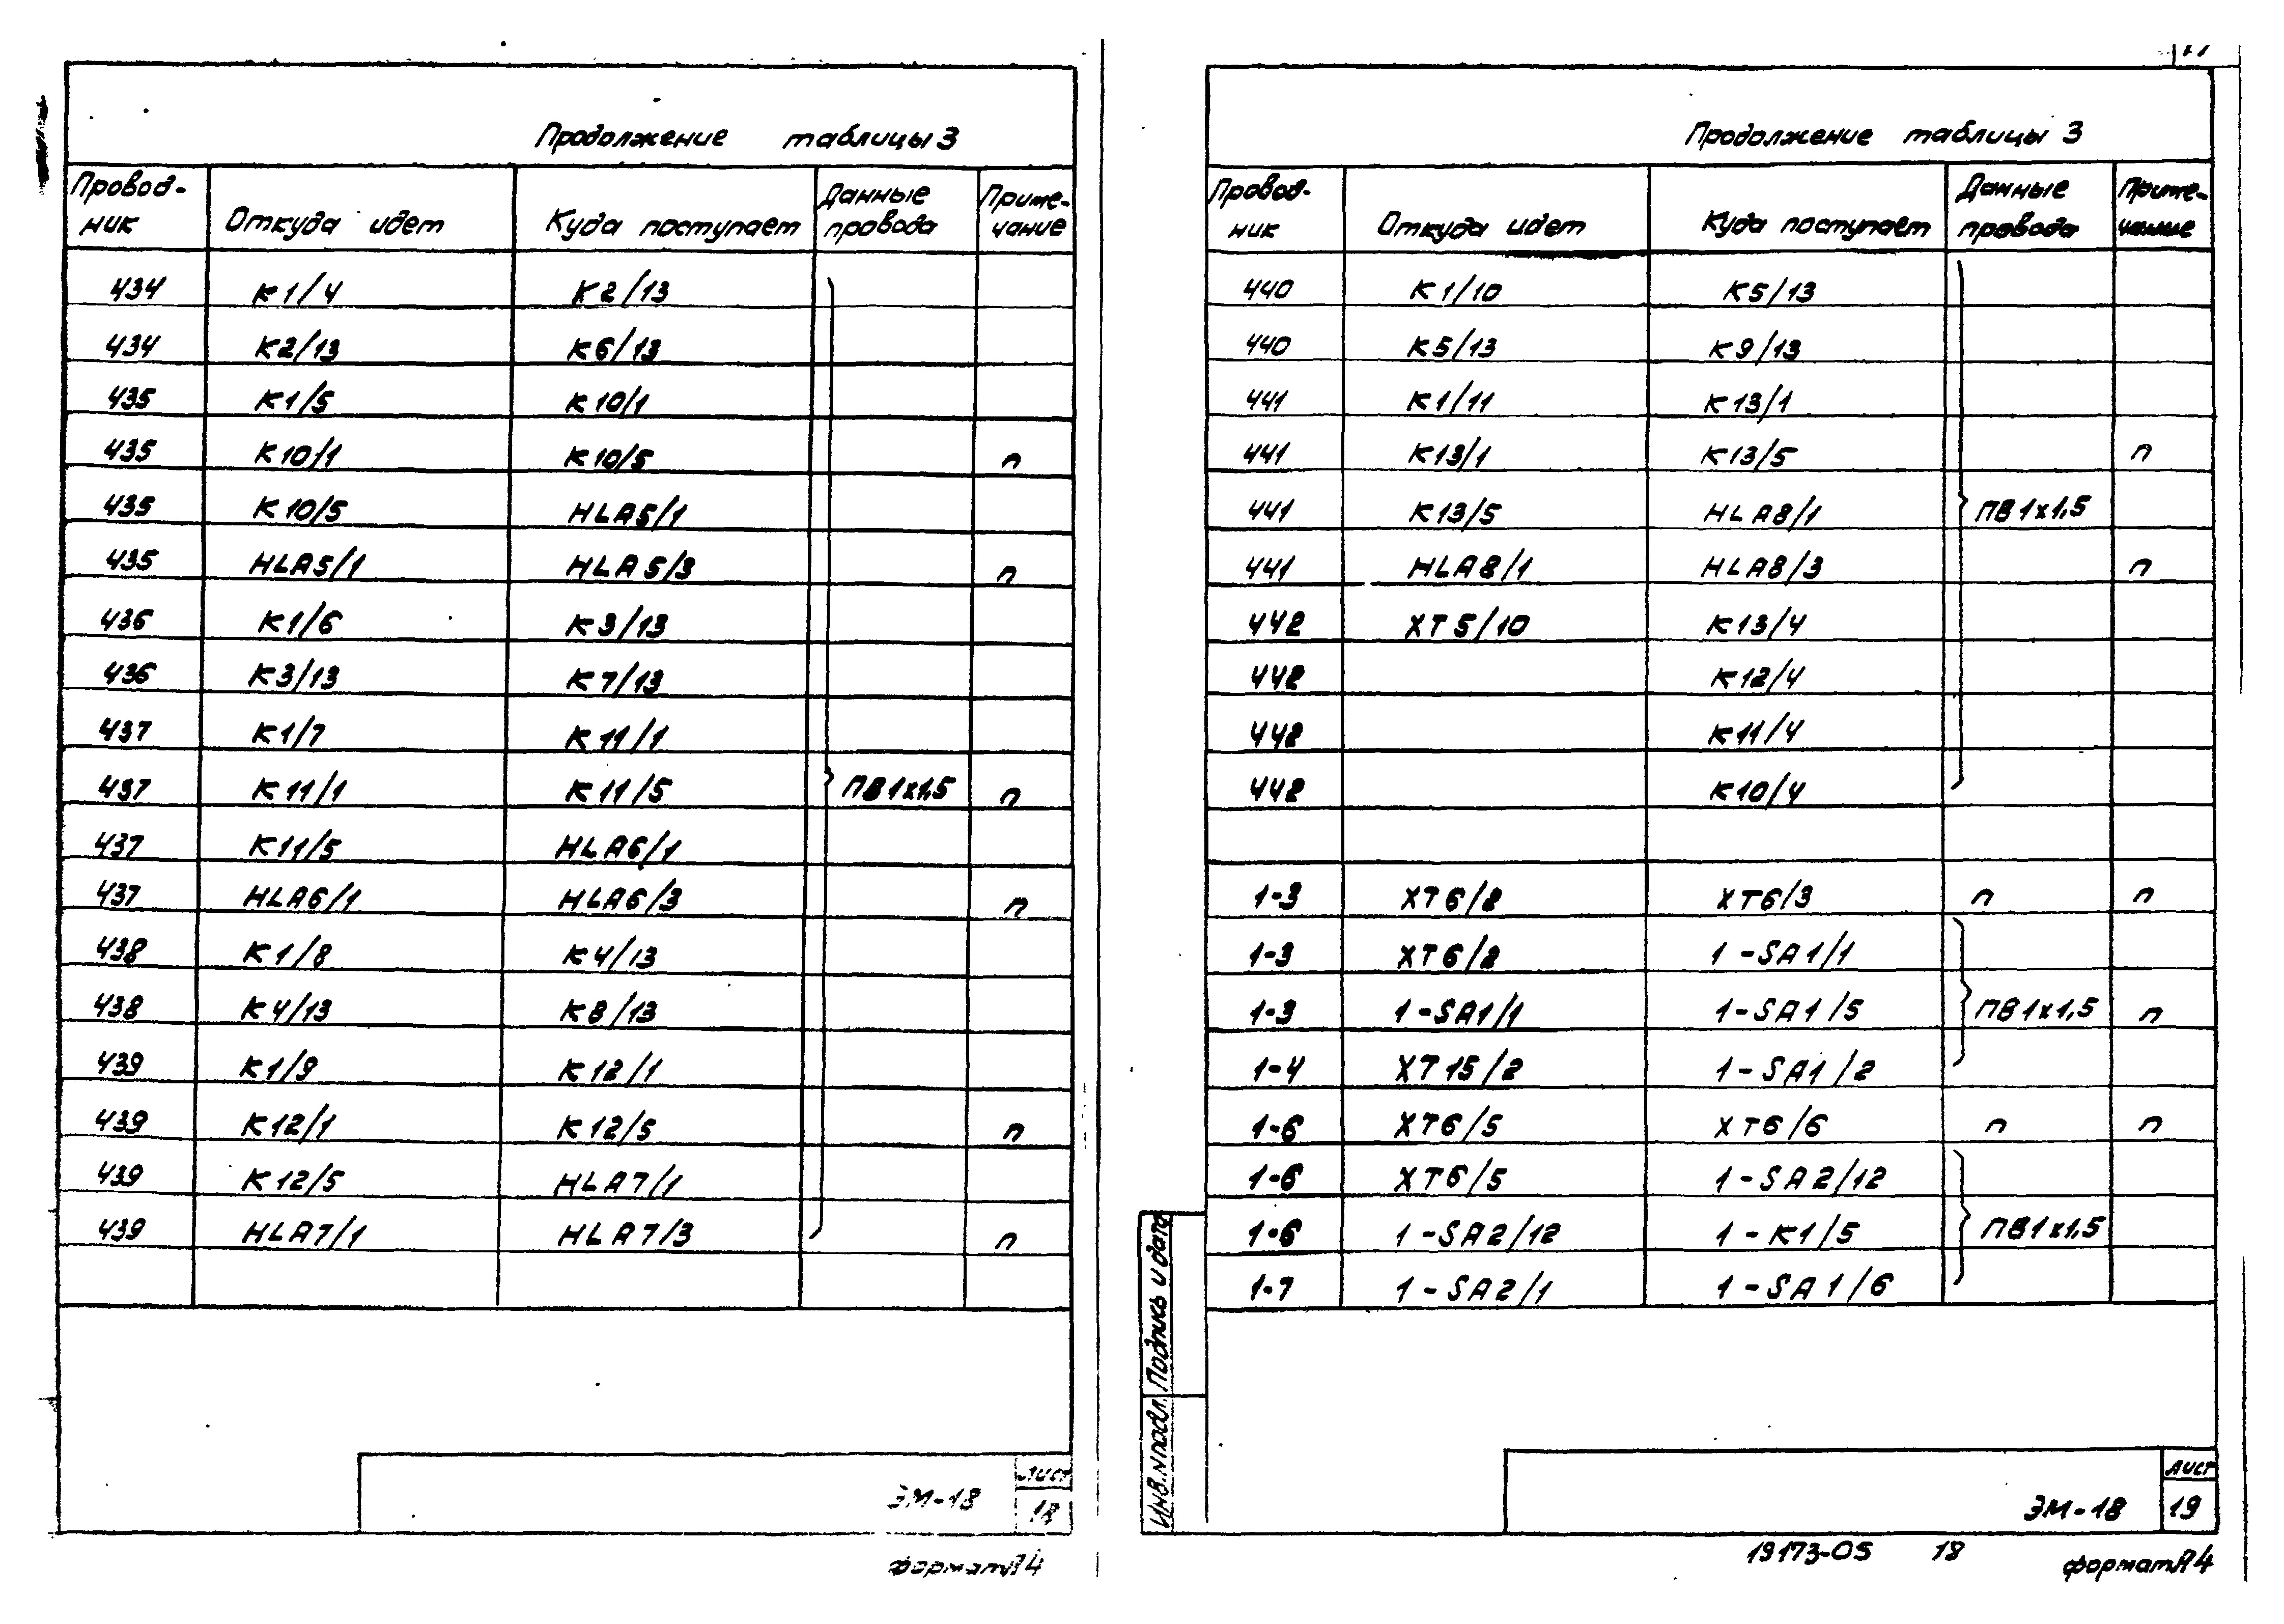 Продолжение таблицы 3
Провод-ник Откуда идет Куда поступает Данные провода Приме-чание
434 К1/4 К2/13
434 К2/13 К6/13
435 К1/5 К10/1
435 К10/1 К10/5 п
435 К10/5 HLA5/1
435 HLA5/1 HLA5/3 п
436 К1/6 К3/13
436 К3/13 К7/13
437 К1/7 К11/1
437 К11/1 К11/5 ПВ1х1,5 п
437 К11/5 HLA6/1
437 HLA6/1 HLA6/3 п
438 К1/8 К4/13
438 К4/13 К8/13
439 К1/9 К12/1
439 К12/1 К12/5 п
439 К12/5 HLA7/1
439 HLA7/1 HLA7/3 п
ЭМ-18
Лист
18
формат А4
Продолжение таблицы 3
Провод-ник Откуда идет Куда поступает Данные провода Приме-чание
440 К1/10 К5/13
440 К5/13 К9/13
441 К1/11 К13/1
441 К13/1 К13/5 п
441 К13/5 HLA8/1 ПВ1х1,5
441 HLA8/1 HLA8/3 п
442 ХТ5/10 К13/4
442 К12/4
442 К11/4
442 К10/4
1-3 ХТ6/2 ХТ6/3 п п
1-3 ХТ6/2 1-SA1/1
1-3 1-SA1/1 1-SA1/5 ПВ1х1,5 п
1-4 ХТ15/2 1-SA1/2
1-6 ХТ6/5 ХТ6/6 п п
1-6 ХТ6/5 1-SA2/12
1-6 1-SA2/12 1-К1/5 ПВ1х1,5
1-7 1-SA2/1 1-SA1/6
Инв.N подл. Подпись и дата
ЭМ-18
Лист
19
19173-05 18
формат А4